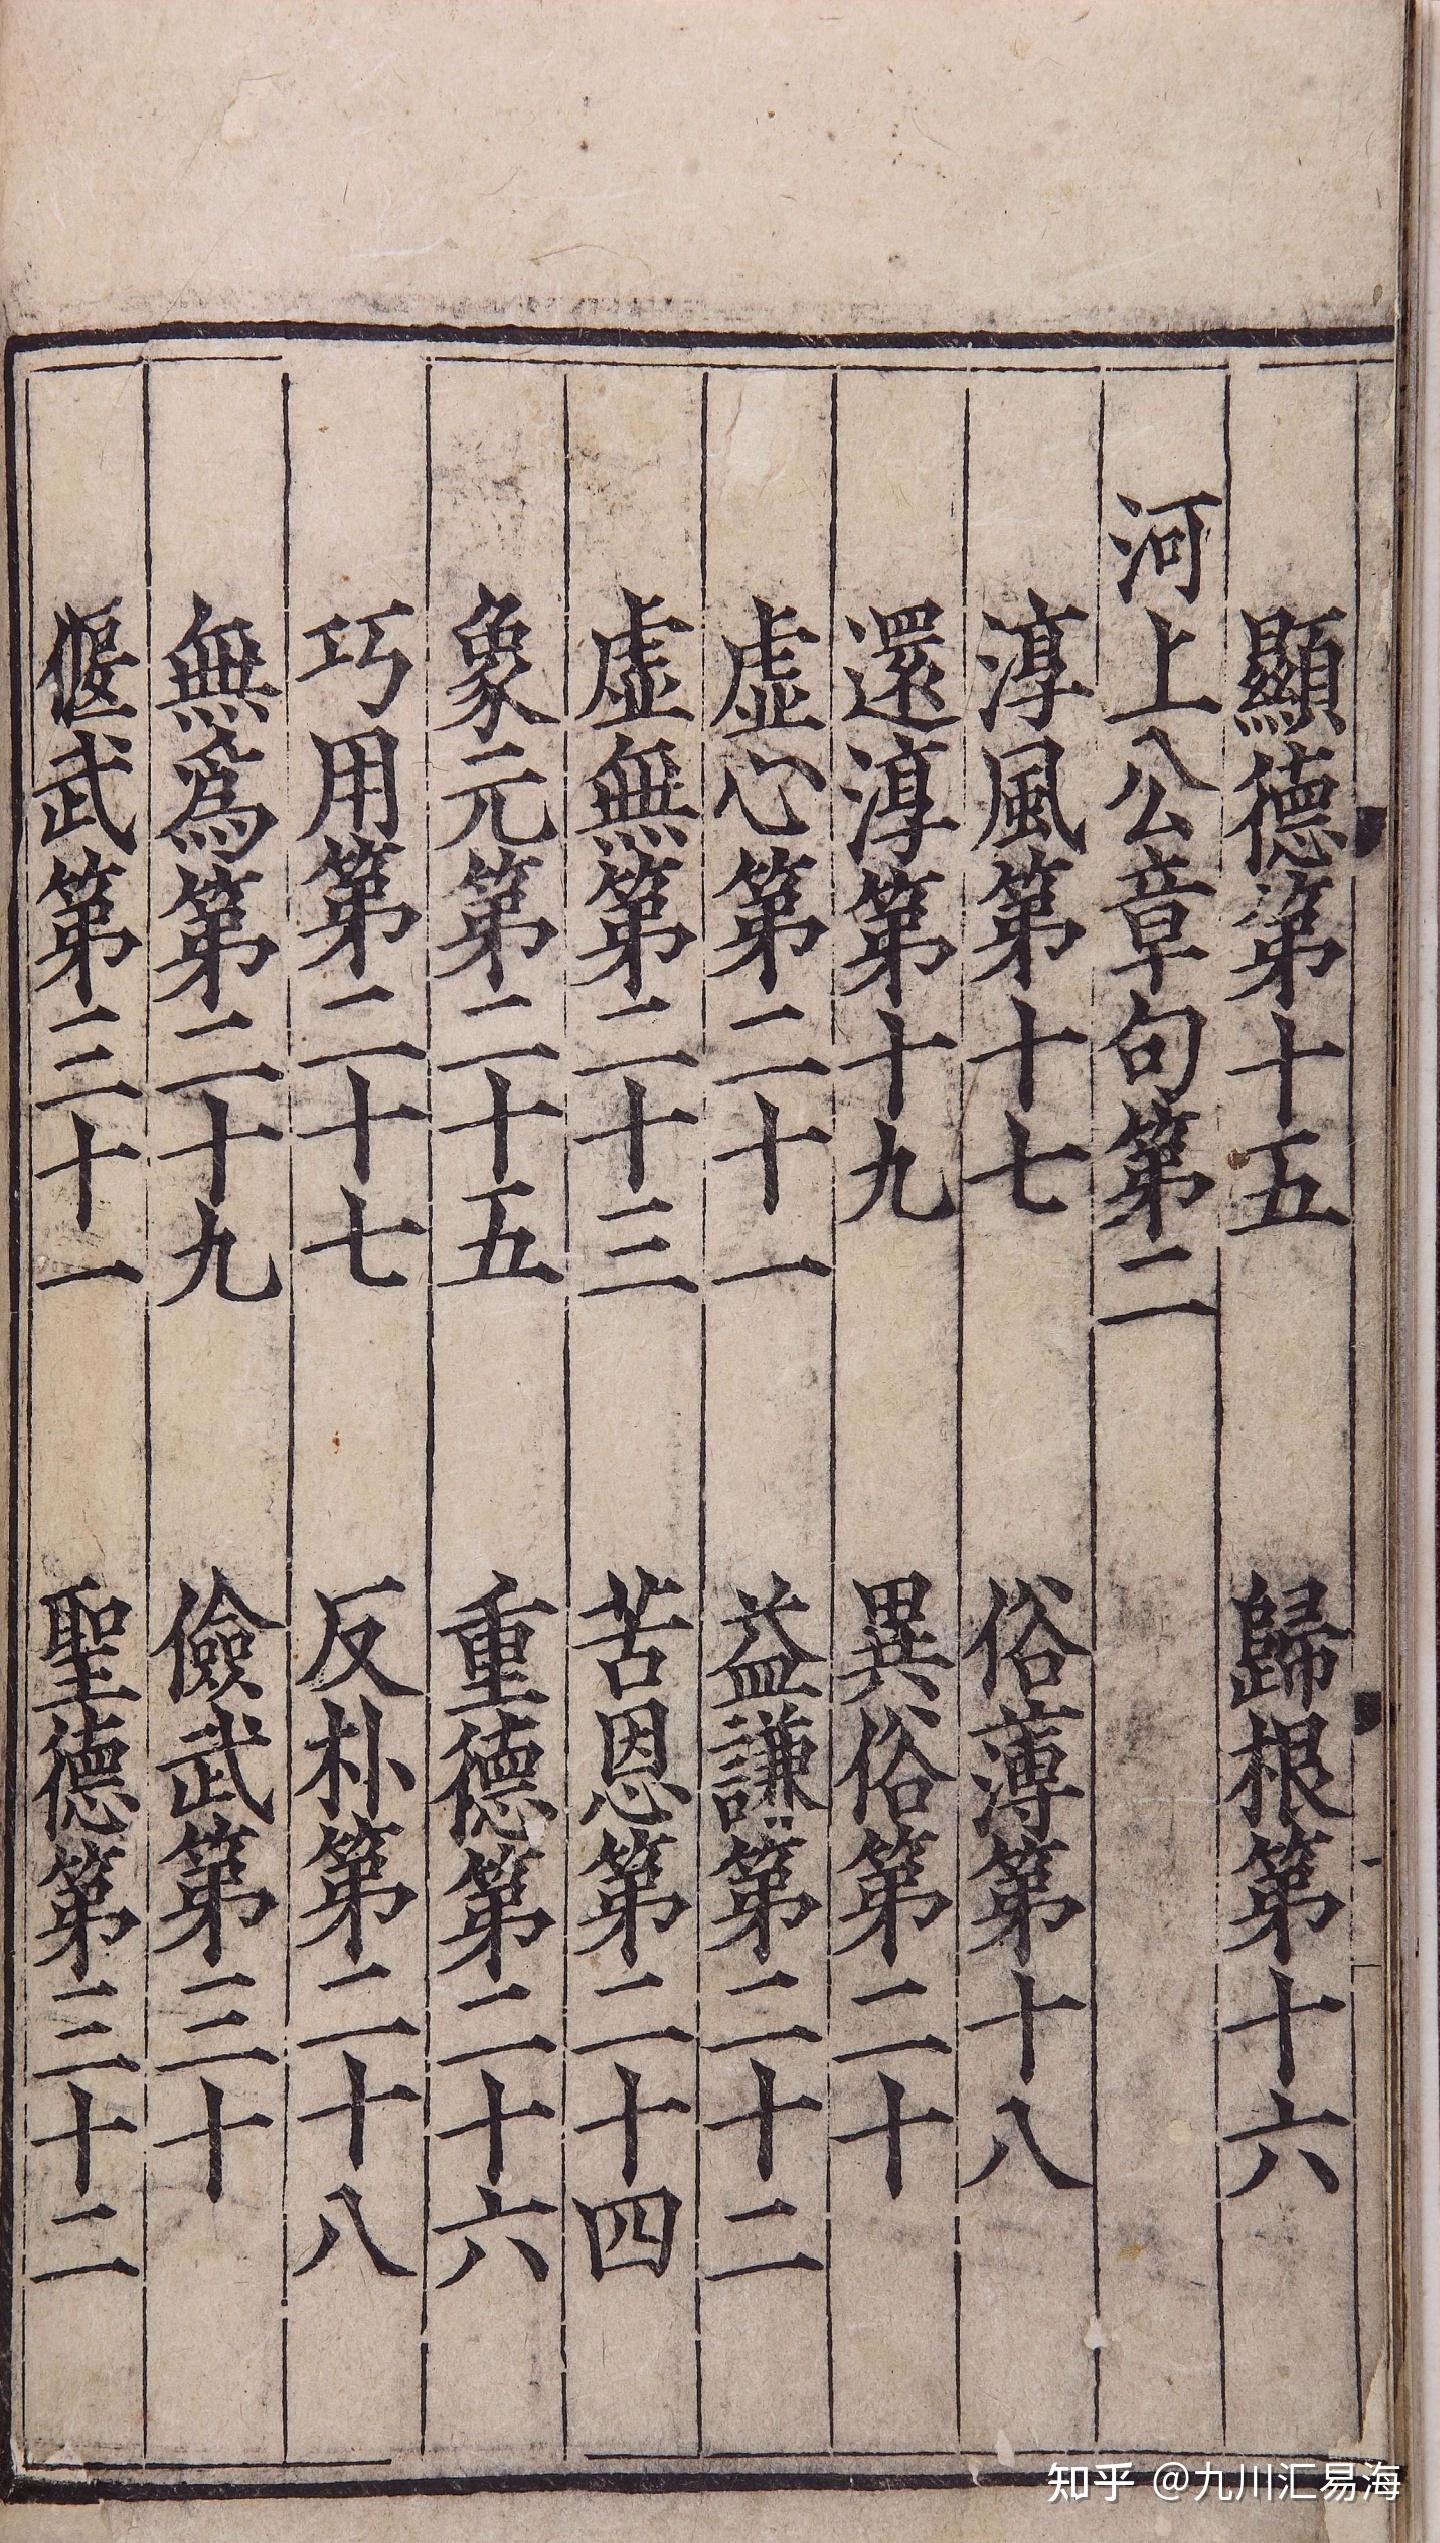 顯德第十五 歸根第十六
河上公章句第二
淳風第十七 俗薄第十八
還淳第十九 異俗第二十
虛心第二十一 益謙第二十二
虛無第二十三 苦恩第二十四
象元第二十五 重德第二十六
巧用第二十七 反朴第二十八
無爲第二十九 儉武第三十
偃武第三十一 聖德第三十二
知乎 @九川汇易海